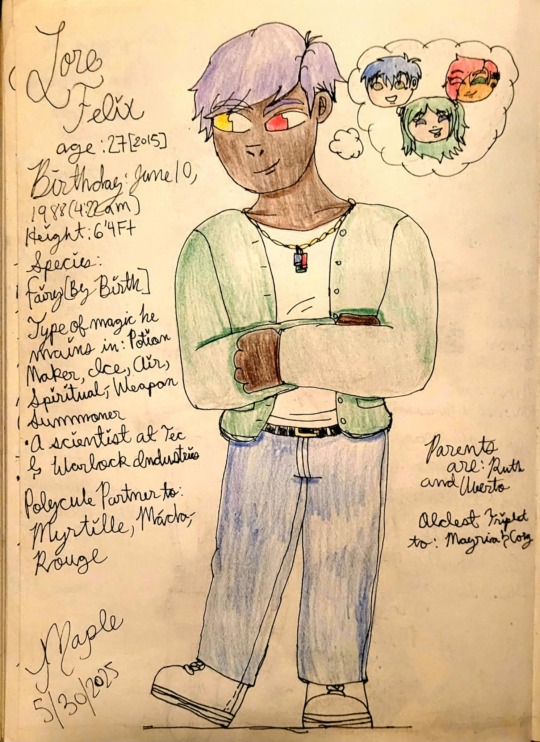 Lore
Felix
age: 27[2015]
Birthday: June 10,
1988 (4:22am)
Height: 6'4Ft
Species:
Fairy [By Birth]
Type of magic he
mains in: Potion
Maker, Ice, Air,
Spiritual, Weapon
Summoner
• A scientist at Tec
& Warlock Industries
Polycute Partner to:
Myrtille, Mácha,
Rouge
Maple
5/30/2025
Parents
are: Ruth
and Uberto
Oldest Triplet
to: Mayria &